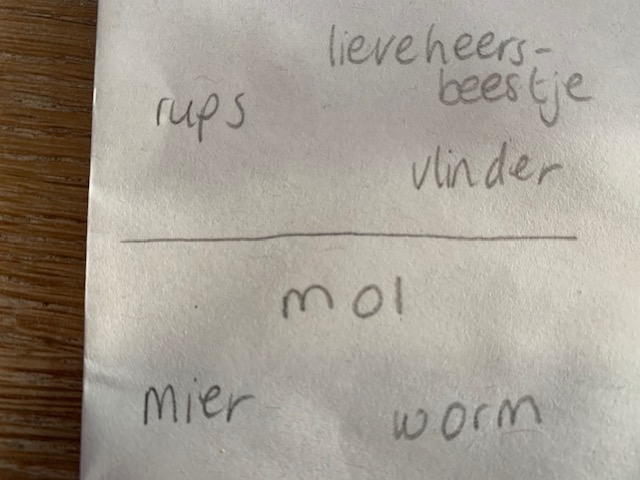 lieveheers-
beestje
rups
vlinder
mol
mier
worm